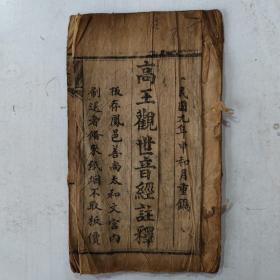 民國九年申和月重鐫
高王觀世音經註釋
板存鳳邑善南太和文宮內
刷送者備來紙烟不取板價